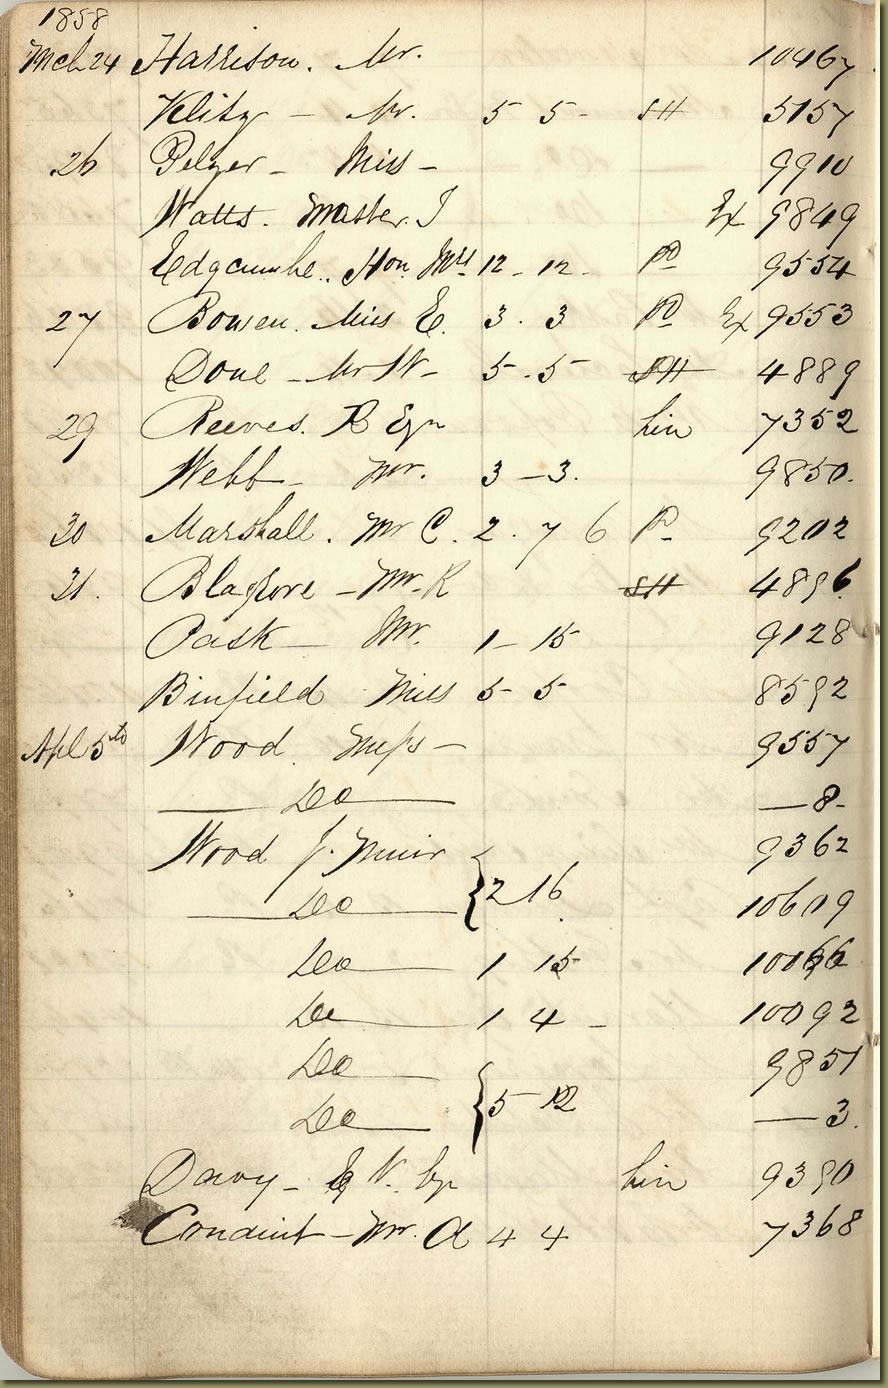 1858
Mch 24 Harrison. Mr. 10467
Klitz – Mr. 5 5 - SH 5157
26 Pelzer – Miss – 9910
Watts. Master. J Ex 9849
Edgcumbe.. Hon Mrs 12 - 12 - Pd 9554
27 Bowen. Miss E. 3. 3 Pd Ex 9553
Done – Mr W – 5. 5 SH 4889
29 Reeves. R Esqr 7352
Webb – Mr. 3 – 3. 9850.
30 Marshall. Mr C. 2. 7 6 Pd 9202
31. Blagrove – Mr. R SH 4896
Pask – Mr. 1 – 15 9128
Binfield Miss 5 5 8592
Apl 5th Wood Messrs – 9557
Do — 8 -
Wood J. Muir 9362
Do { 2 16 10609
Do 1 15 10066
Do 1 4 – 10092
Do 9851
Do { 5 12 — 3.
Davy – E W. Esqr 9390
Conduit – Mr. A 4 4 7368